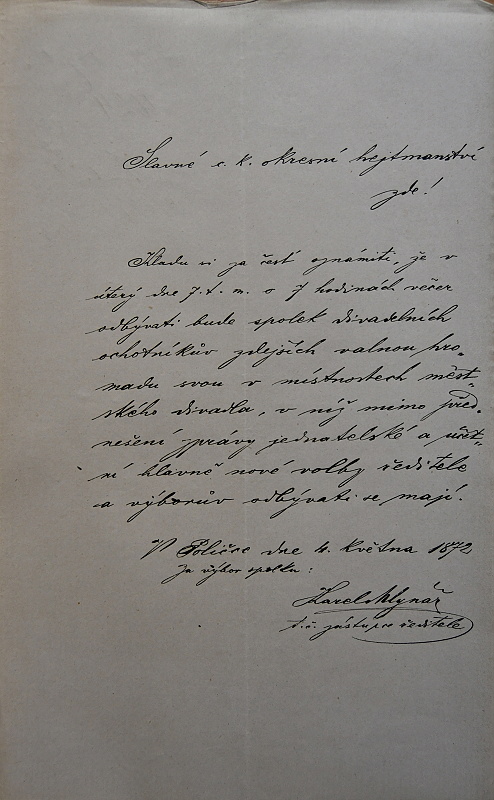 Slavné c. k. okresní hejtmanství
zde!
Kladu si za čest oznámiti, že v
úterý dne 7. t. m. o 7 hodinách večer
odbývati bude spolek divadelních
ochotníkův zdejších valnou hro-
madu svou v místnostech měst-
ského divadla, v níž mimo před-
nešení zprávy jednatelské a účet-
ní hlavně nové volby ředitele
a výborův odbývati se mají.
V Poličce dne 4. května 1872
Za výbor spolku:
Karel Mlynář
t. č. zástupce ředitele